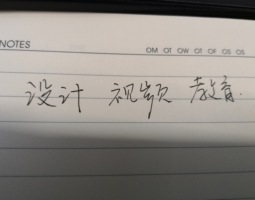 NOTES
OM OT OW OT OF OS OS
设计 视频 教育.